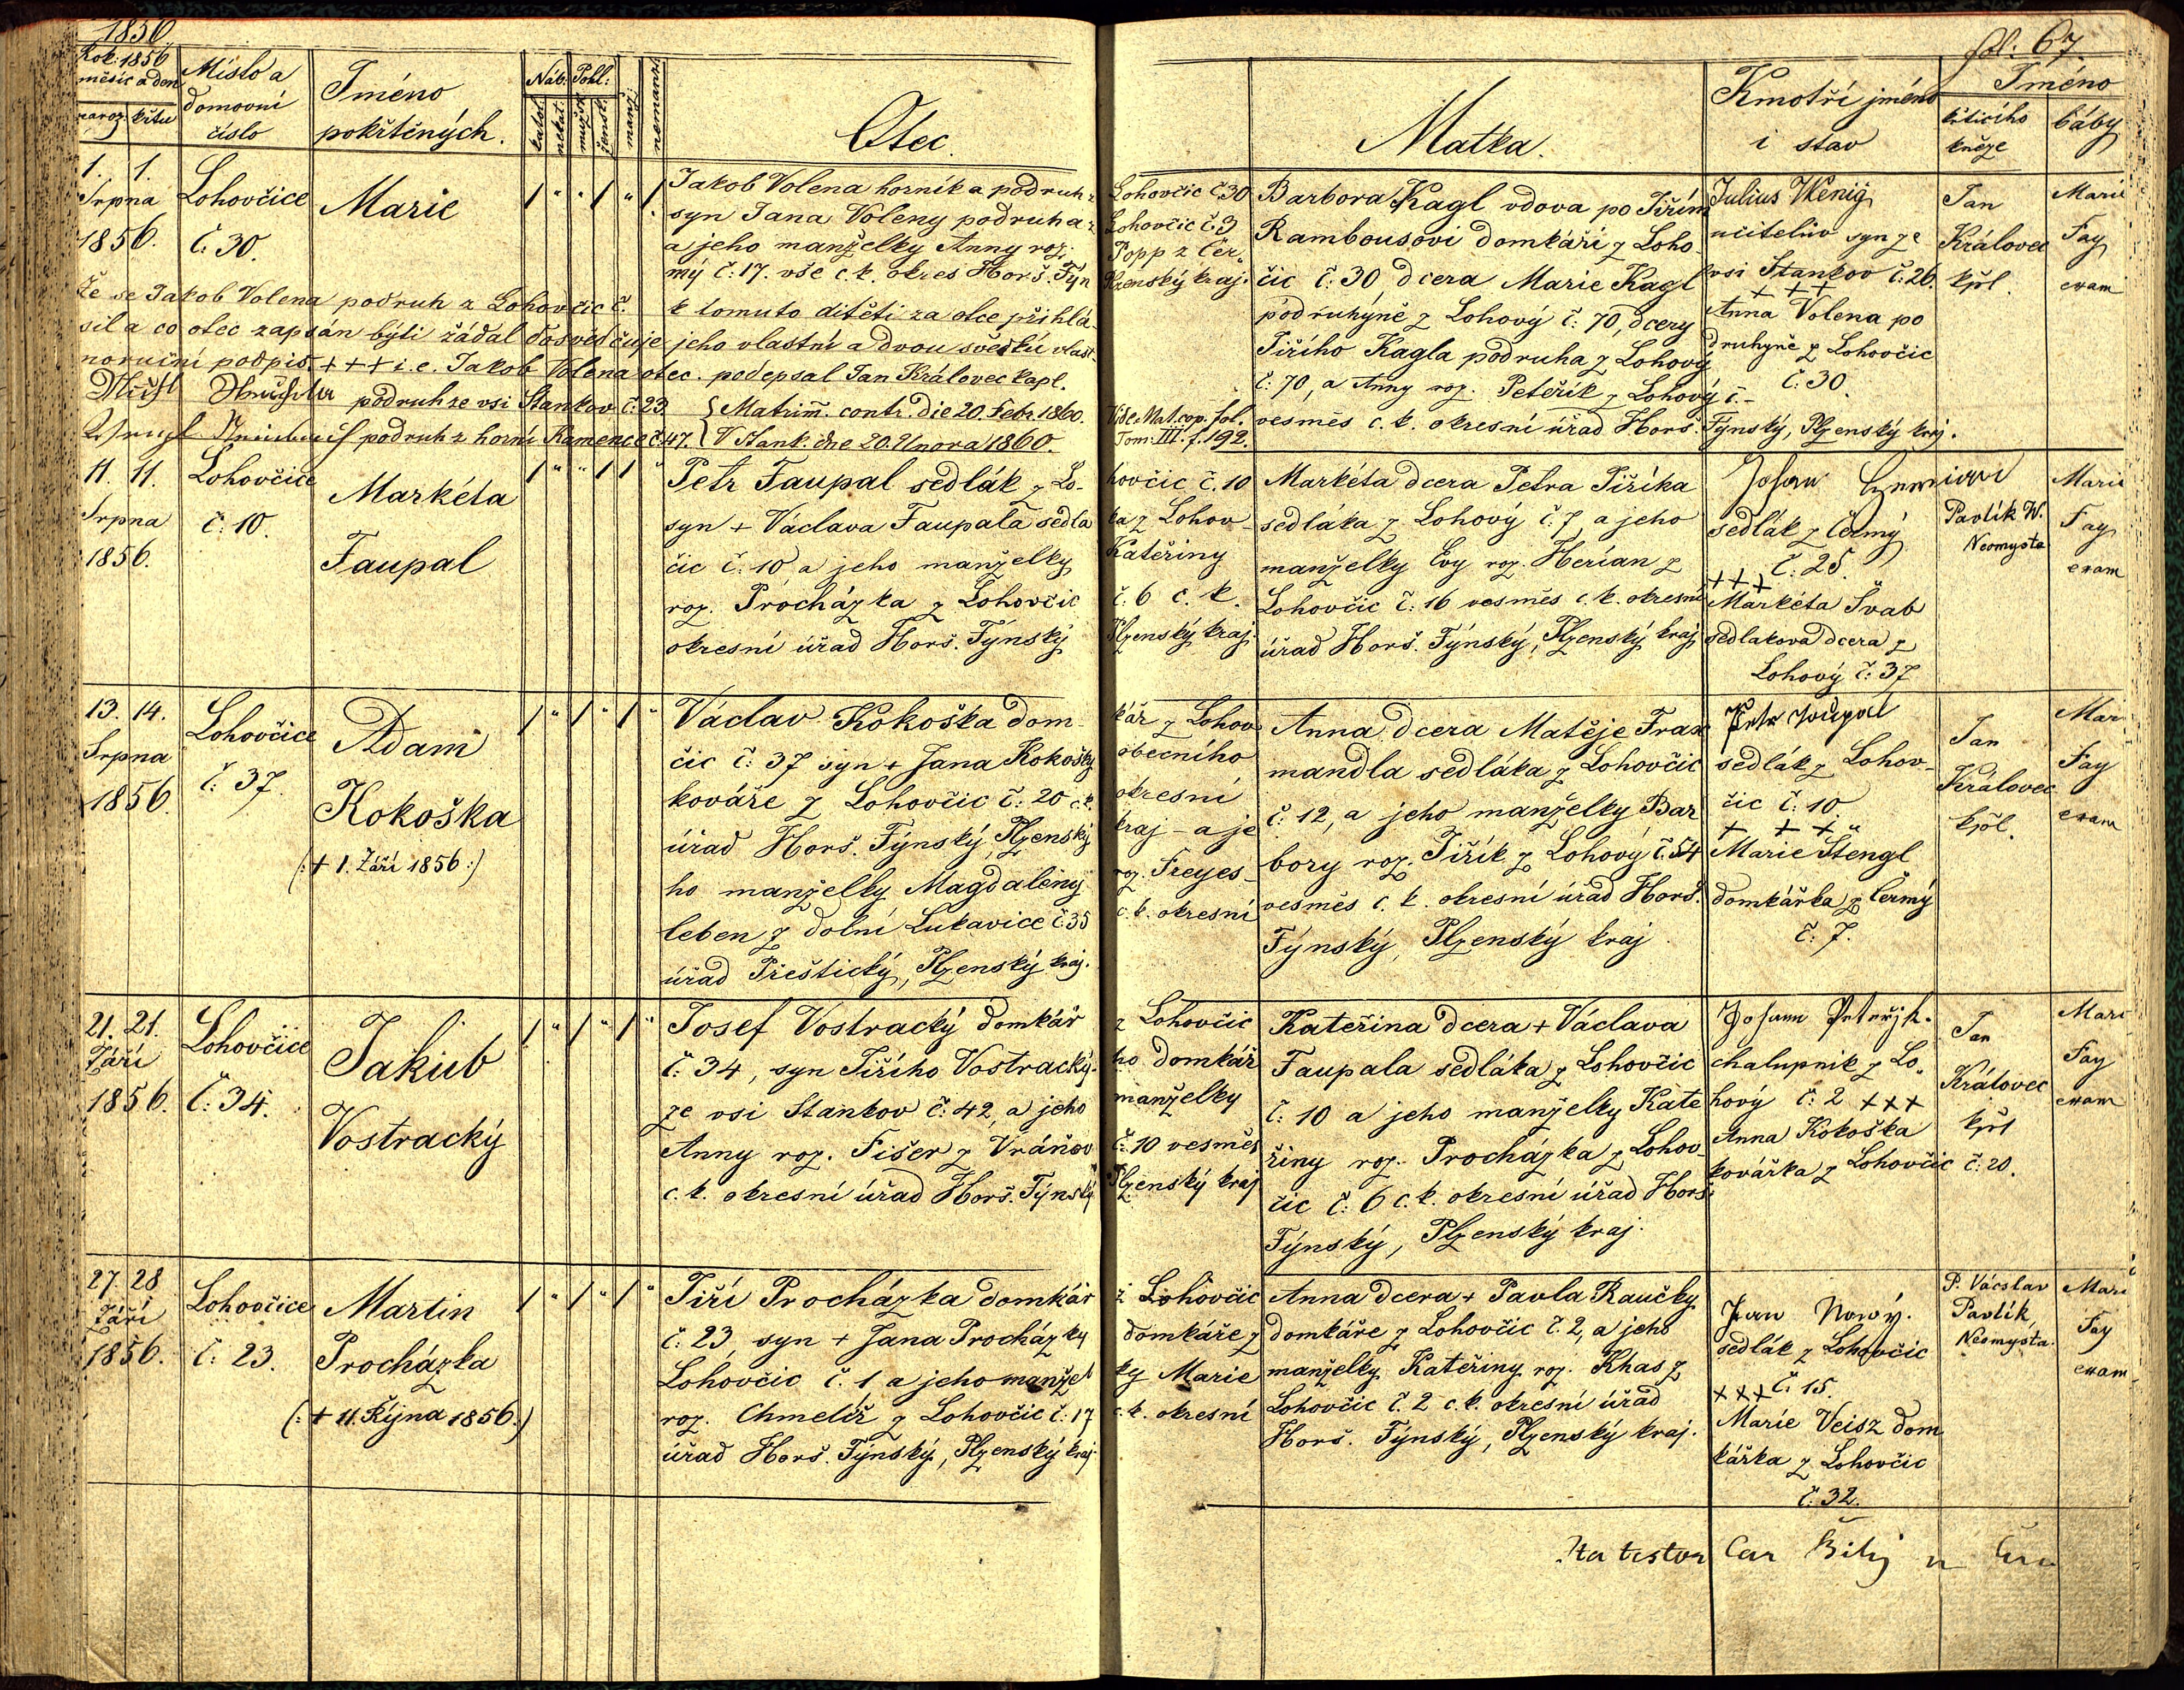 1856
fol. 67.
Rok: 1856 měsíc a den
naroz. křtu
Místo a domovní číslo
Jméno pokřtěných.
Náb: Pohl:
katol. nekat. mužsk. žensk. manž. nemanž.
Otec.
Matka.
Kmotři jméno i stav
Jméno
křticího kněze
báby
1. 1.
Srpna
1856.
Lohovčice
č. 30.
Marie
Jakob Volena horník a podruh z Lohovčic č. 30
syn Jana Voleny podruha z Lohovčic č. 3
a jeho manželky Anny roz. Popp z Čer-
mý č: 17. vše c. k. okres Horš. Týn Plzenský kraj.
Barbora Kagl vdova po Jiřím
Rambousovi domkáři z Loho
čic č: 30 dcera Marie Kagl
podruhyně z Lohový č: 70, dcery
Jiřího Kagla podruha z Lohový
č: 70, a Anny roz. Peteřík z Lohový č. –
vesměs c. k. okresní úřad Horš. Týnský, Plzenský kraj.
Julius Wenig
učitelův syn ze
vsi Stankov č: 26.
+ + +
Anna Volena po
druhyně z Lohovčic
č: 30.
Jan
Královec
kpl.
Marie
Fay
exam
že se Jakob Volena podruh z Lohovčic č. k tomuto dítěti za otce přihlá-
sil a co otec zapsán býti žádal dosvědčuje jeho vlastní a dvou svědků vlast-
noruční podpis. + + + i. e. Jakob Volena otec. podepsal Jan Královec kapl.
podruh ze vsi Stankov č. 23. { Matrim. contr. die 20. Febr. 1860. Vide Mat. cop. fol.
podruh z horní Kamence č. 47. { V Stank. dne 20. Února 1860. Tom: III. f. 192.
11. 11.
Srpna
1856.
Lohovčice
č: 10.
Markéta
Faupal
Petr Faupal sedlák z Lo-hovčic č. 10
syn + Václava Faupala sedlá ka z Lohov-
čic č: 10 a jeho manželky Kateřiny
roz. Procházka z Lohovčic č. 6 c. k.
okresní úřad Horš. Týnský Plzenský kraj.
Markéta dcera Petra Jiříka
sedláka z Lohový č. 7, a jeho
manželky Evy roz. Herían z
Lohovčic č: 16 vesměs c. k. okresní
úřad Horš. Týnský, Plzenský kraj
Johann
sedlák z Čermý
č: 25.
+ + +
Markéta Švab
sedlakova dcera z
Lohový č: 37
Pavlík W.
Neomysta
Marie
Fay
exam
13. 14.
Srpna
1856.
Lohovčice
č: 37.
Adam
Kokoška
(: + 1. Září 1856 :)
Václav Kokoška dom-kář z Lohov
čic č: 37 syn + Jana Kokošky obecního
kováře z Lohovčic č: 20 c. k. okresní
úřad Horš. Týnský, Plzenský kraj – a je
ho manželky Magdaleny roz. Freyes-
leben z dolní Lukavice č 35 c. k. okresní
úřad Přeštický, Plzenský kraj.
Anna dcera Matěje Frax
mandla sedláka z Lohovčic
č: 12, a jeho manželky Bar
bory roz. Jiřík z Lohový č. 54
vesměs c. k. okresní úřad Horš.
Týnský, Plzenský kraj.
Petr Foupal
sedlák z Lohov-
čic č: 10.
+ + +
Marie Stengl
domkářka z Čermý
č: 7.
Jan
Královec
kpl.
Mar
Fay
exam
21. 21.
Září
1856.
Lohovčice
č: 34.
Jakub
Vostracký
Josef Vostracký domkář z Lohovčic
č: 34, syn Jiřího Vostracký-ho domkář
ze vsi Stankov č: 42, a jeho manželky
Anny roz. Fišer z Vráňov č: 10 vesměs
c. k. okresní úřad Horš. Týnský Plzenský kraj
Kateřina dcera + Václava
Faupala sedláka z Lohovčic
č: 10 a jeho manželky Kate
řiny roz. Procházka z Lohov-
čic č: 6 c. k. okresní úřad Horš.
Týnský, Plzenský kraj.
Johann Peteřjk.
chalupník z Lo-
hový č: 2 + + +
Anna Kokoška
kovářka z Lohovčic č: 20.
Jan
Královec
kpl
Mari
Fay
exam
27. 28
Září
1856.
Lohovčice
č: 23.
Martin
Procházka
(: + 11. Října 1856 :)
Jiří Procházka domkář z Lohovčic
č: 23, syn + Jana Procházky domkáře z
Lohovčic č. 1 a jeho manžel ky Marie
roz. Chmelíř z Lohovčic č: 17 c. k. okresní
úřad Horš. Týnský, Plzenský kraj.
Anna dcera + Pavla Raučky
domkáře z Lohovčic č. 2, a jeho
manželky Kateřiny roz. Khas z
Lohovčic č. 2 c. k. okresní úřad
Horš. Týnský, Plzenský kraj.
Jan Nowý.
sedlák z Lohovčic
+ + + č: 15.
Marie Veisz dom
kářka z Lohovčic
č: 32.
P. Vácslav
Pavlík,
Neomysta.
Mari
Fay
exam